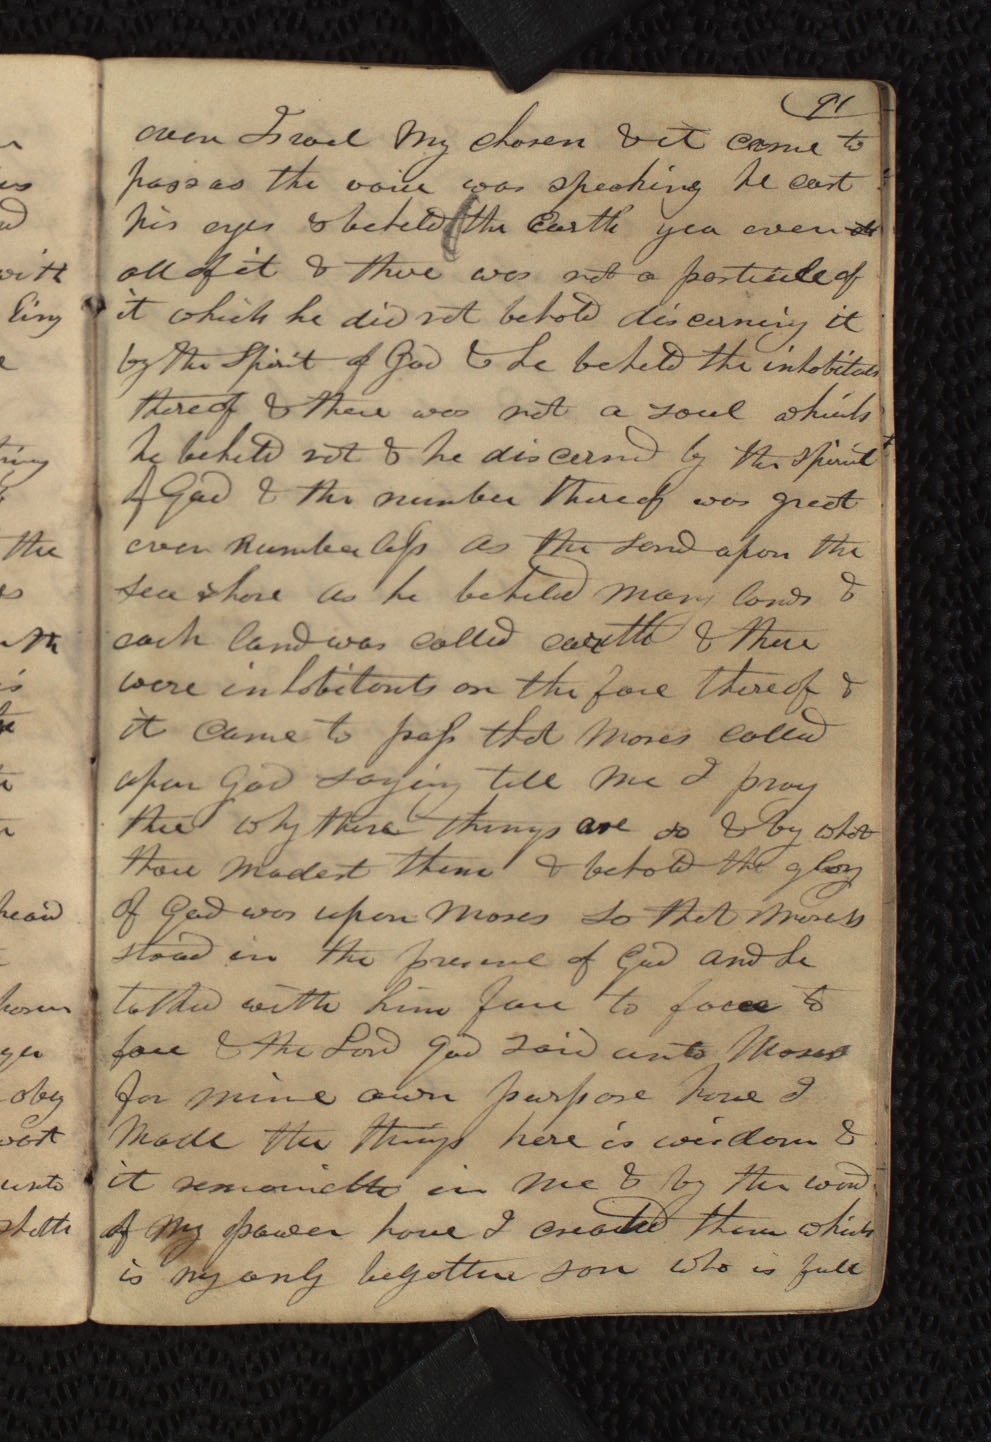 91
even Israel My chosen & it came to
pass as the voice was speaking he cast
his eyes & beheld the Earth yea even
all of it & there was not a particle of
it which he did not behold discerning it
by the Spirit of God & he beheld the inhabitan
thereof & there was not a soul which
he beheld not & he discerned by the spirit
of God & the number thereof was great
even numberless as the sand upon the
sea shore as he beheld many lands &
each land was called earth & there
were inhabitants on the face thereof &
it came to pass that Moses called
upon God saying tell me I pray
thee why these things are so & by what
thou madest them & behold the glory
of God was upon Moses so that Moses
stood in the presence of God and he
talked with him face to face &
face & the Lord God said unto Moses
for mine own purpose have I
Made the things here is wisdom &
it remaineth in me & by the word
of My power have I created them which
is my only begotten son who is full
with
ling
the
is
heard
obey
unto